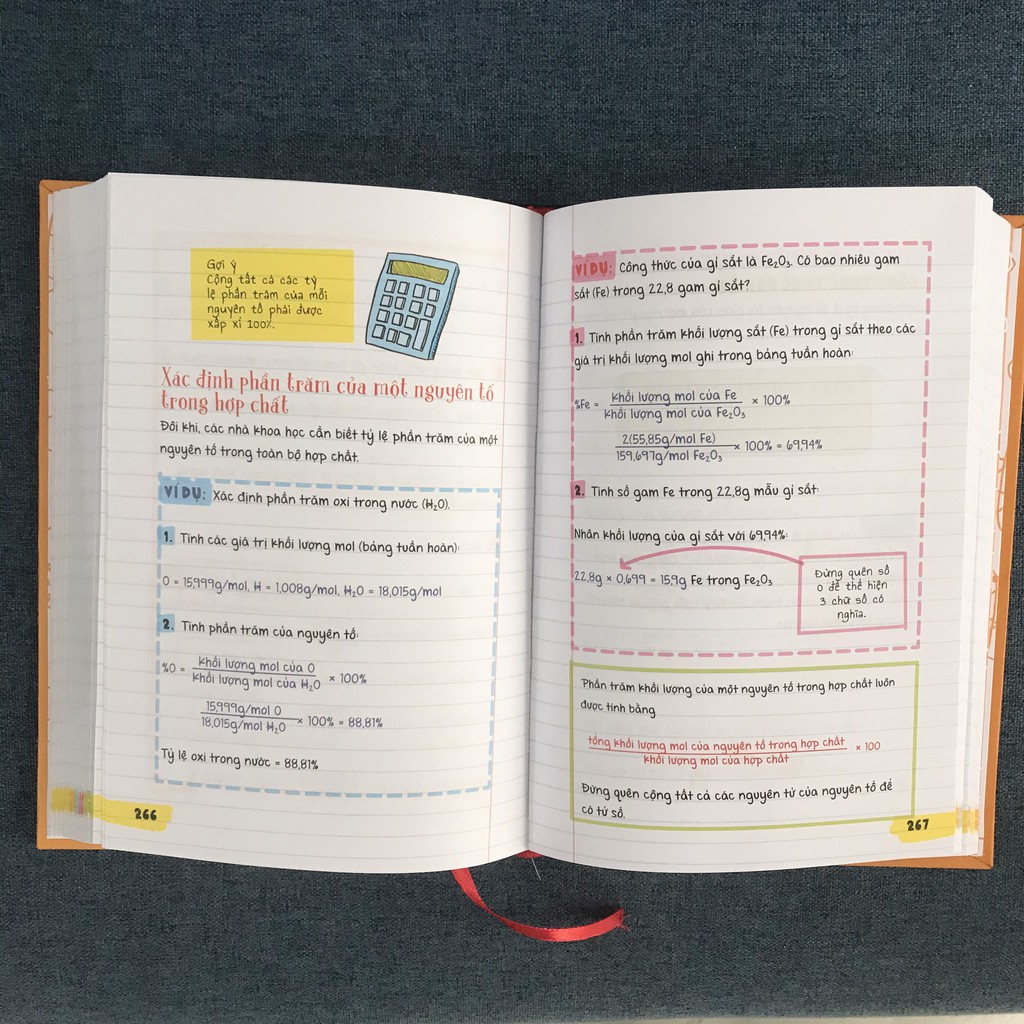 Gợi ý
Cộng tất cả các tỷ
lệ phần trăm của mỗi
nguyên tố phải được
xấp xỉ 100%.
Xác định phần trăm của một nguyên tố
trong hợp chất
Đôi khi, các nhà khoa học cần biết tỷ lệ phần trăm của một
nguyên tố trong toàn bộ hợp chất.
VÍ DỤ: Xác định phần trăm oxi trong nước (H₂O).
1. Tính các giá trị khối lượng mol (bảng tuần hoàn):
O = 15,999g/mol, H = 1,008g/mol, H₂O = 18,015g/mol
2. Tính phần trăm của nguyên tố:
%O = khối lượng mol của O
khối lượng mol của H₂O × 100%
15,999g/mol O
18,015g/mol H₂O × 100% = 88,81%
Tỷ lệ oxi trong nước = 88,81%
266
VÍ DỤ: Công thức của gỉ sắt là Fe₂O₃. Có bao nhiêu gam
sắt (Fe) trong 22,8 gam gỉ sắt?
1. Tính phần trăm khối lượng sắt (Fe) trong gỉ sắt theo các
giá trị khối lượng mol ghi trong bảng tuần hoàn:
%Fe = khối lượng mol của Fe
khối lượng mol của Fe₂O₃ × 100%
2(55,85g/mol Fe)
159,697g/mol Fe₂O₃ × 100% = 69,94%
2. Tính số gam Fe trong 22,8g mẫu gỉ sắt:
Nhân khối lượng của gỉ sắt với 69,94%:
22,8g × 0,699 = 15,9g Fe trong Fe₂O₃
Đừng quên số
0 để thể hiện
3 chữ số có
nghĩa.
Phần trăm khối lượng của một nguyên tố trong hợp chất luôn
được tính bằng
tổng khối lượng mol của nguyên tố trong hợp chất
khối lượng mol của hợp chất × 100
Đừng quên cộng tất cả các nguyên tử của nguyên tố để
có tử số.
267